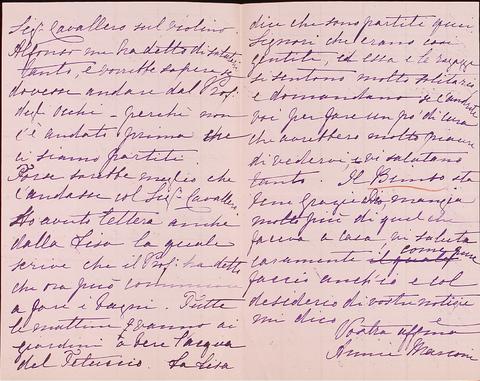 Sig. Cavallero sul violino.
Alfonso me ha detto di salutarti
tanto, e vorrebbe sapere se
dovesse andare dal Prof.
degl' Occhi – perchè non
c'è andato prima che
ci siamo partiti
Forse sarebbe meglio che
l'andasse col Sig. Cavallero.
Ho avuto lettera anche
dalla Lisa la quale
scrive che il Prof. ha detto
che ora può cominciare
a fare i bagni. Tutte
le mattine vanno ai
giardini a bere l'acqua
del Tetuccio. La Lisa
dice che sono partite quei
Signori che erano così
gentile, ed essa e le ragazze
si sentono molto solitarie
e domandano se l'andrete
voi per fare un pò di cura
che avrebbero molto piacere
di vedervi, e vi salutano
tanto. Il Bimbo sta
bene grazie Dio, mangia
molto più di quel che
faceva a casa, vi saluta
caramente come pure
faccio anch'io e col
desiderio di vostre notizie
mi dico
Vostra affma
Annie Marconi